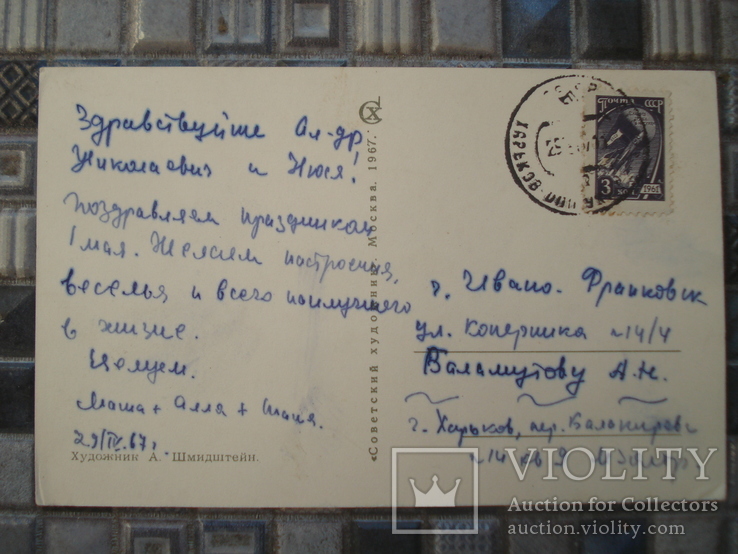 Здравствуйте Ал-др
Николаевич и Нюся!
Поздравляем праздником
1 мая. Желаем настроения,
веселья и всего наилучшего
в жизни.
Целуем.
Маша + Алла + Таня.
29/IV.67г
Художник А. Шмидштейн.
«Советский художник». Москва. 1967.
ПОЧТА СССР
3
1961
г. Ивано-Франковск
ул. Коперника №14/4
Валамутову А.Н.
г. Харьков, пер. Балакирева
№14 кв 9
VIOLITY
Auction for Collectors
auction.violity.com